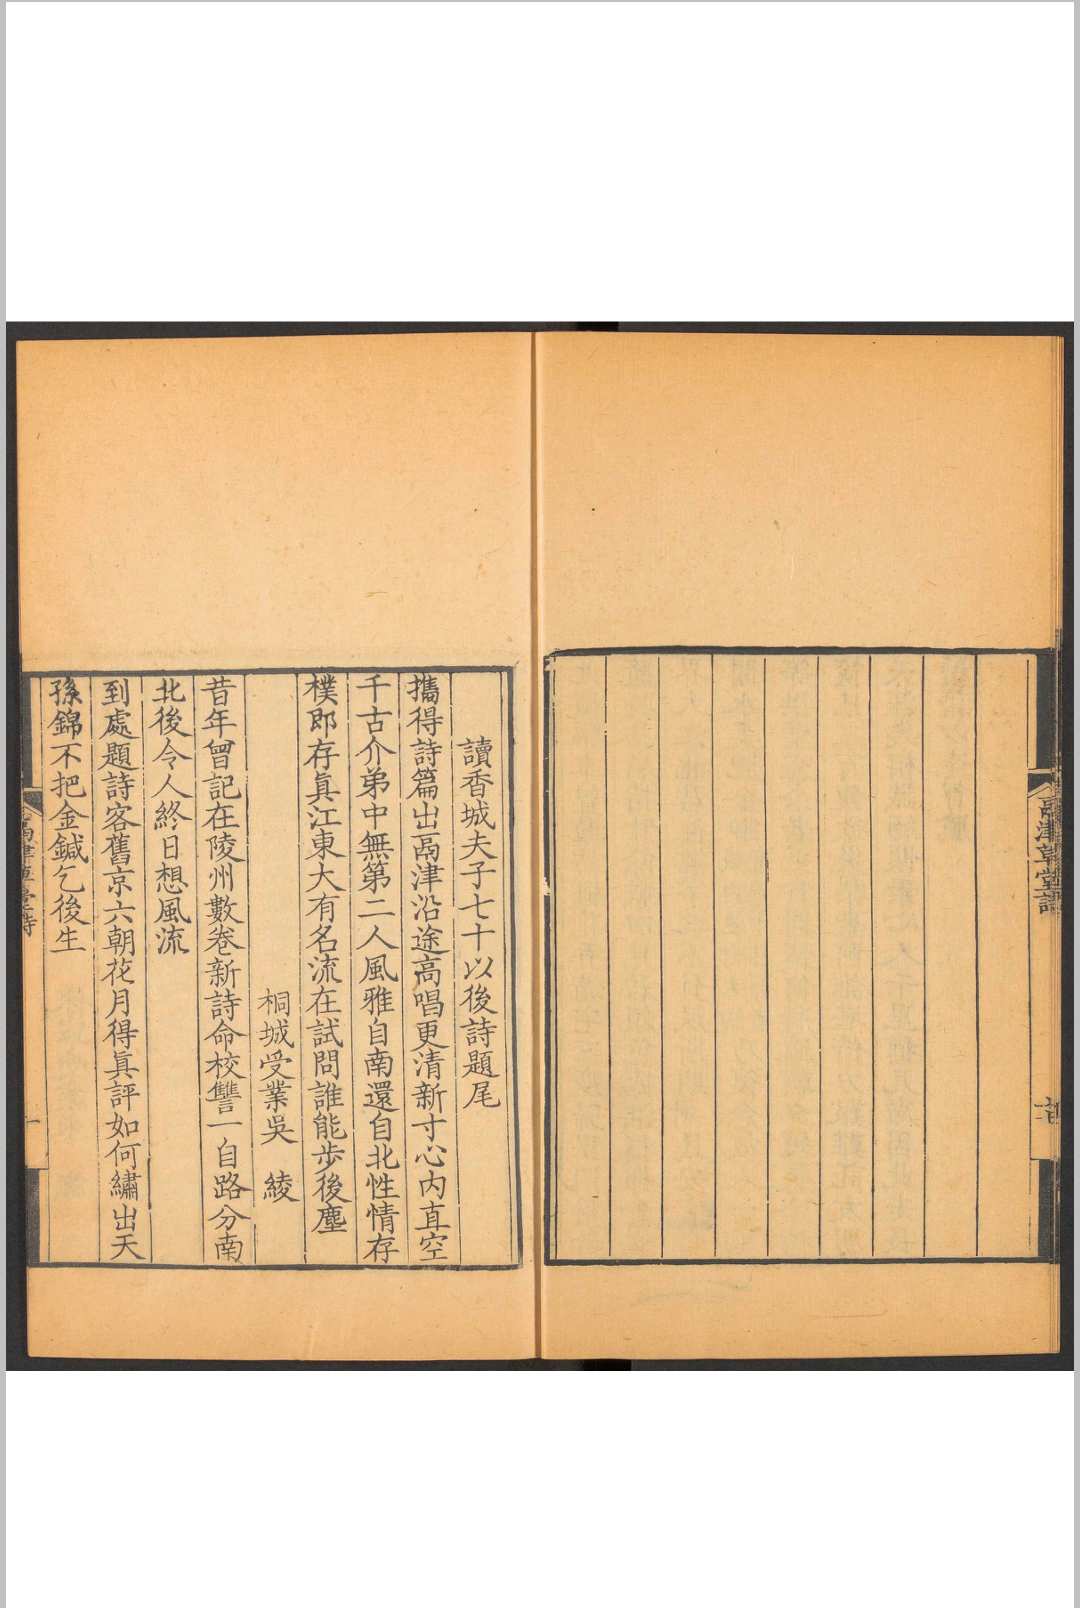 讀香城夫子七十以後詩題尾
攜得詩篇出鬲津沿途高唱更清新寸心內直空
千古介弟中無第二人風雅自南還自北性情存
樸即存眞江東大有名流在試問誰能步後塵
桐城受業吳　綾
昔年曾記在陵州數卷新詩命校讐一自路分南
北後令人終日想風流
到處題詩客舊京六朝花月得眞評如何繡出天
孫錦不把金鍼乞後生